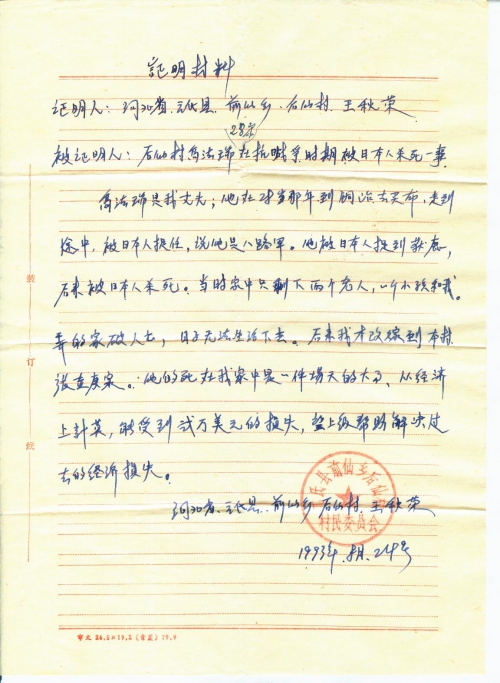 証明材料
证明人：河北省、元氏县、前仙乡、石仙村、王秋荣
28岁
被证明人：石仙村 法瑞在抗战 时期被日本人杀死一事
法瑞是我丈夫；他在 那年到 去买布，走到
途中，被日本人捉住，说他是八路军。他被日本人捉到获鹿，
后来被日本人杀死。当时家中只剩下两个老人，一个小孩和我。
弄的家破人亡，日子无法生活下去。后来我才改嫁到本村
张 家。他的死在我家中是一件塌天的大事，从经济
上计算，能受到贰万美元的损失，望上级帮助解决过
去的经济损失。
河北省、元氏县、前仙乡 石仙村 王秋荣
1993年 月24号
氏县前仙乡石仙村
村民委员会
装
订
线
审文 26.5×19.2（ ）79.9